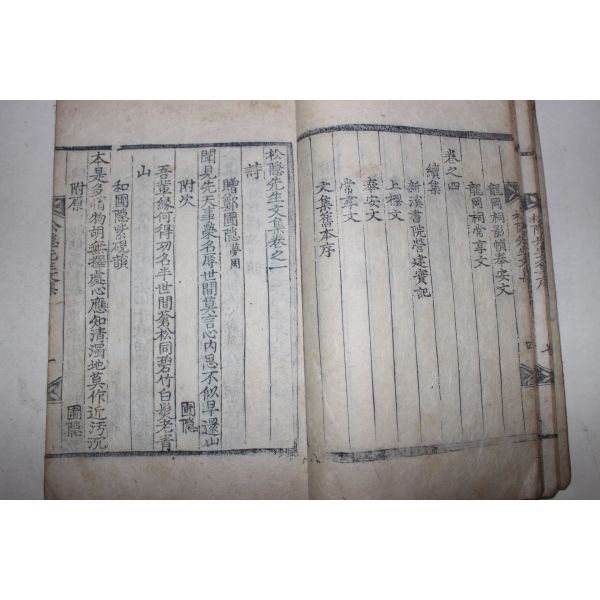 龍岡祠影幀奉安文
龍岡祠常享文
卷之四
續集
新溪書院營建實記
上樑文
奉安文
常享文
文集舊本序
松隱先生文集卷之一
詩
贈鄭圃隱夢周
聞見先天事藥名辱世間莫言心內思不似早還山
附次 圃隱
吾輩緣何得功名半世間蒼松同碧竹白髮老青
山
和圃隱紫硯韻
本是多情物胡無擇處心應知清濁地莫作近汚沉
附原 圃隱